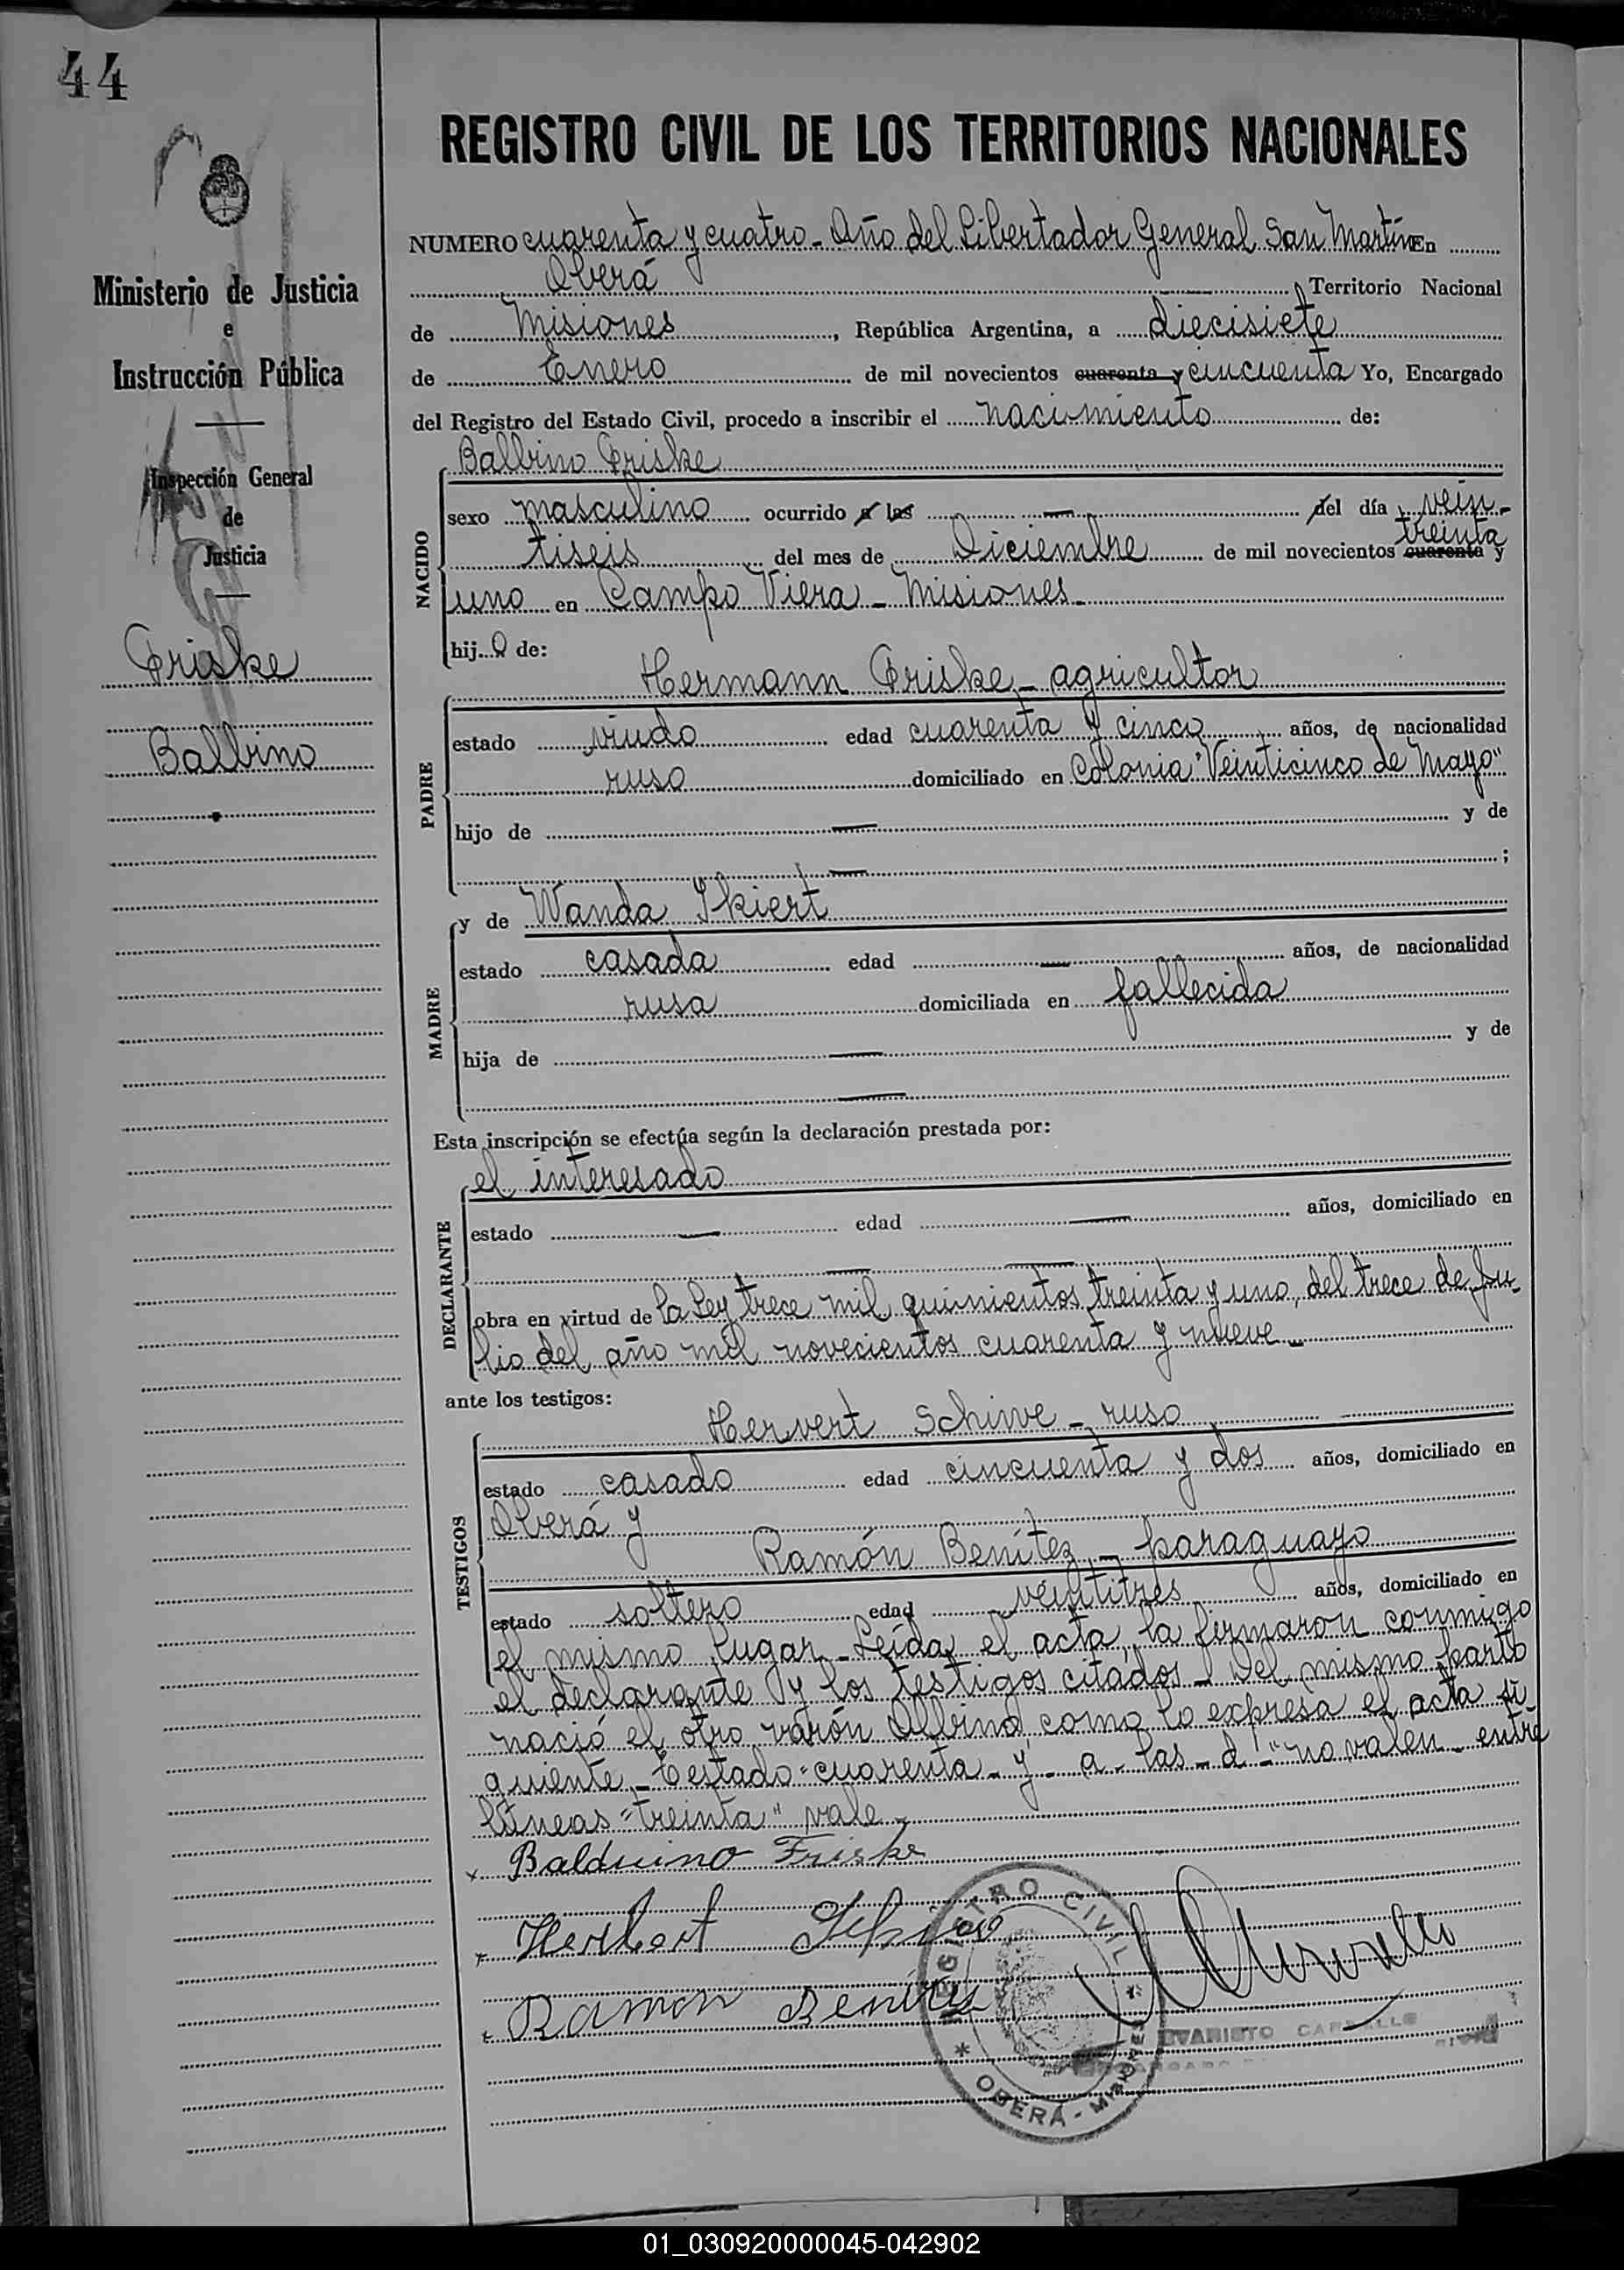 44
REGISTRO CIVIL DE LOS TERRITORIOS NACIONALES
NUMERO cuarenta y cuatro - Año del Libertador General San Martín En
Oberá, Territorio Nacional
de Misiones, República Argentina, a diecisiete
de Enero de mil novecientos cuarenta y cincuenta Yo, Encargado
del Registro del Estado Civil, procedo a inscribir el nacimiento de:
Ministerio de Justicia
e
Instrucción Pública
Inspección General
de
Justicia
Friske
Balbino
NACIDO
Balbino Friske
sexo masculino ocurrido a las — del día vein-
tiseis del mes de Diciembre de mil novecientos cuarenta y treinta
uno en Campo Viera - Misiones -
hijo de:
PADRE
Hermann Friske - agricultor
estado viudo edad cuarenta y cinco años, de nacionalidad
ruso domiciliado en Colonia "Veinticinco de Mayo"
hijo de — y de
— ;
MADRE
y de Wanda Skiert
estado casada edad — años, de nacionalidad
rusa domiciliada en fallecida
hija de — y de
—
Esta inscripción se efectúa según la declaración prestada por:
DECLARANTE
el interesado
estado — edad — años, domiciliado en
— —
obra en virtud de la Ley trece mil quinientos treinta y uno, del trece de Ju-
lio del año mil novecientos cuarenta y nueve -
ante los testigos:
TESTIGOS
Hervert Schive - ruso
estado casado edad cincuenta y dos años, domiciliado en
Oberá y
Ramón Benítez - paraguayo
estado soltero edad veintitres años, domiciliado en
el mismo lugar - Leída el acta, la firmaron conmigo
el declarante y los testigos citados - Del mismo parto
nació el otro varón Albino como lo expresa el acta si-
guiente - Testado "cuarenta - y - a - las - d -" no valen - entre
líneas "treinta" vale -
x Balduino Friske
x Herbert
x Ramon Benitez
REGISTRO CIVIL
* OBERÁ - MISIONES *
EVARISTO
01_030920000045-042902